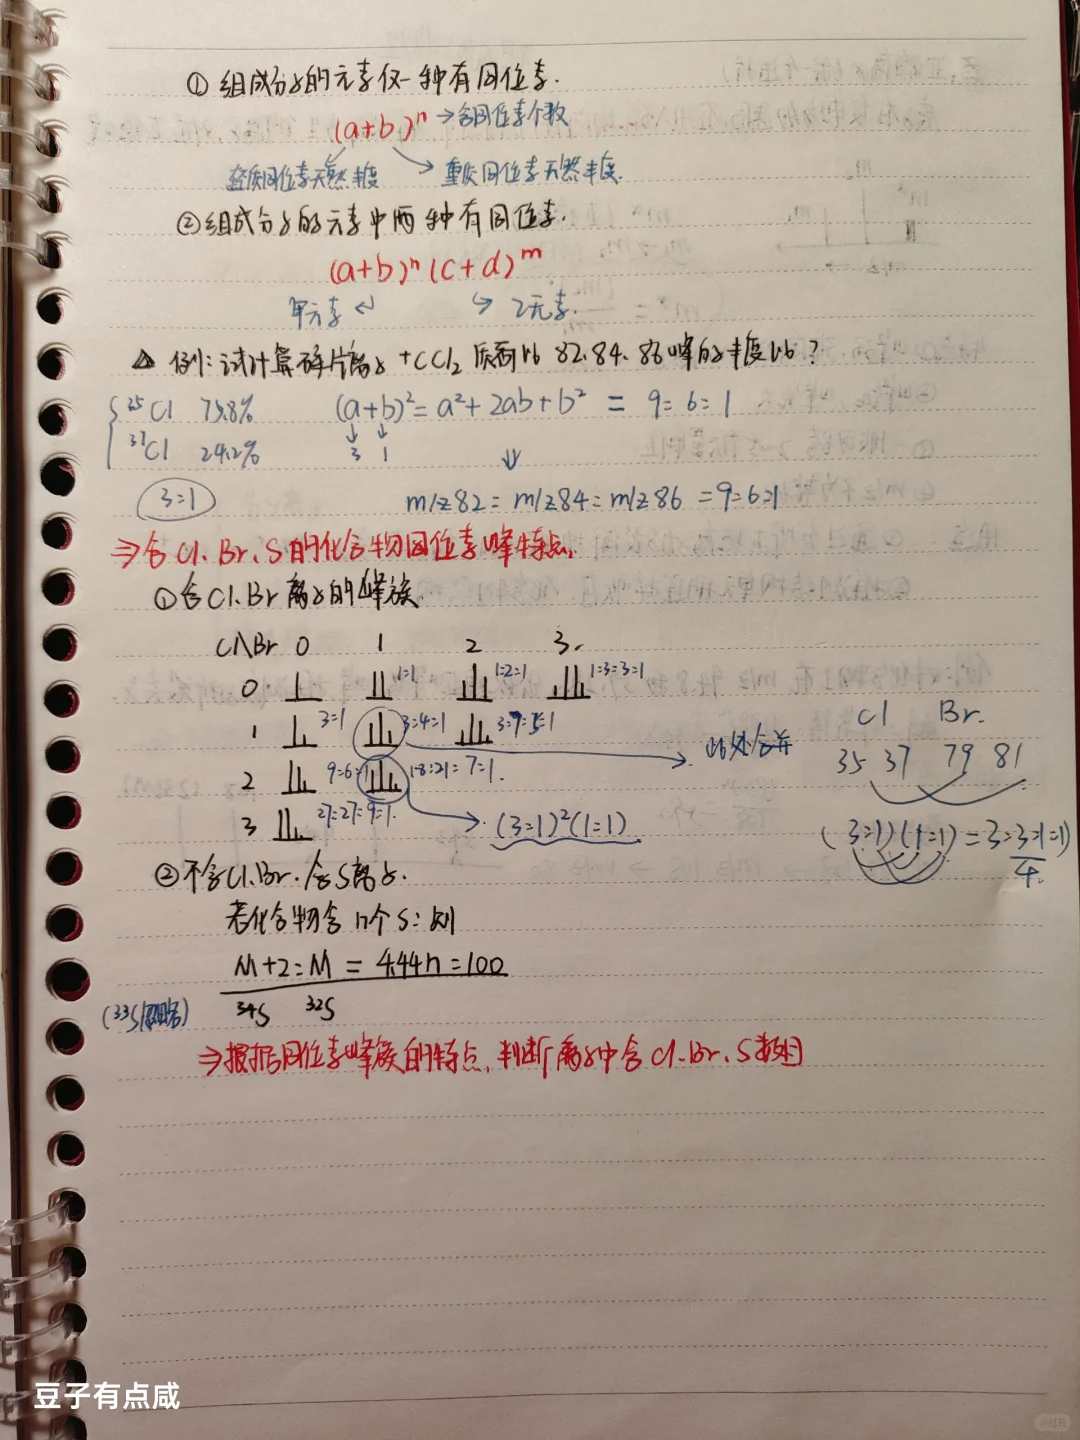 ① 组成分子的元素仅一种有同位素.
(a+b)ⁿ → 含同位素个数
轻质同位素天然丰度 重质同位素天然丰度.
② 组成分子的元素中两种有同位素.
(a+b)ⁿ (c+d)ᵐ
甲元素 乙元素.
△ 例: 试计算碎片离子 +CCl₂ 质荷比 82.84.86峰的丰度比?
³⁵Cl 75.8% (a+b)² = a² + 2ab + b² = 9:6:1
³⁷Cl 24.2% 3 1
3:1 m/z82 : m/z84 : m/z86 = 9:6:1
⇒ 含 Cl. Br. S 的化合物同位素峰特点.
① 含 Cl.Br 离子的峰族.
Cl\Br 0 1 2 3.
0 1:1 1:2:1 1:3:3:1
1 3:1 3:4:1 3:7:5:1
2 9:6:1 :7:1.
3 27:27:9:1. (3:1)²(1:1)
此处合并
Cl Br.
35 37 79 81
(3:1)(1:1) = 3:3:1:1)
4.
② 不含 Cl.Br. 含S离子.
若化合物含 n个 S: 则
M+2 : M = 4.44n : 100
(³³S忽略) ³⁴S ³²S
⇒ 根据同位素峰簇的特点, 判断离子中含 Cl. Br. S 数目
豆子有点咸